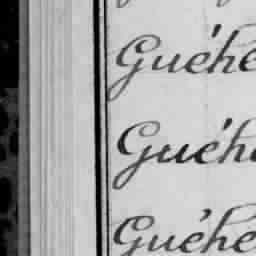 Guéhe
Guéh
Guéhe